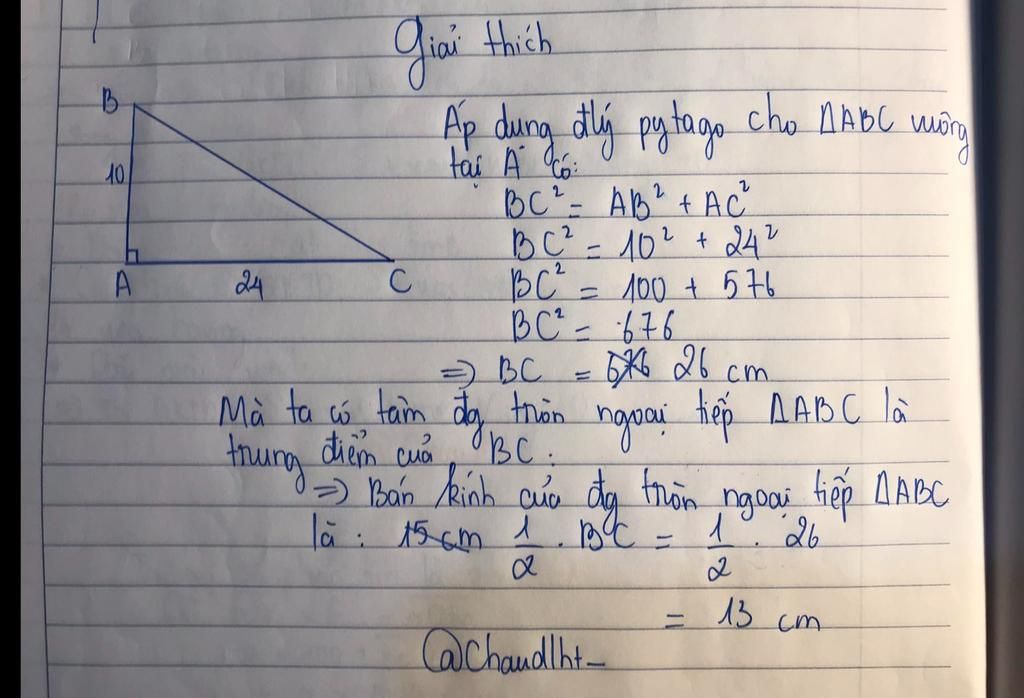 Giải thích
B
10
A
24
C
Áp dụng đlý pytago cho ΔABC vuông
tại A có:
BC² = AB² + AC²
BC² = 10² + 24²
BC² = 100 + 576
BC² = 676
=> BC = 26 cm
Mà ta có tâm đg tròn ngoại tiếp ΔABC là
trung điểm của BC.
=> Bán kính của đg tròn ngoại tiếp ΔABC
là : 15 cm 1/2 . BC = 1/2 . 26
= 13 cm
@Chaudlht_